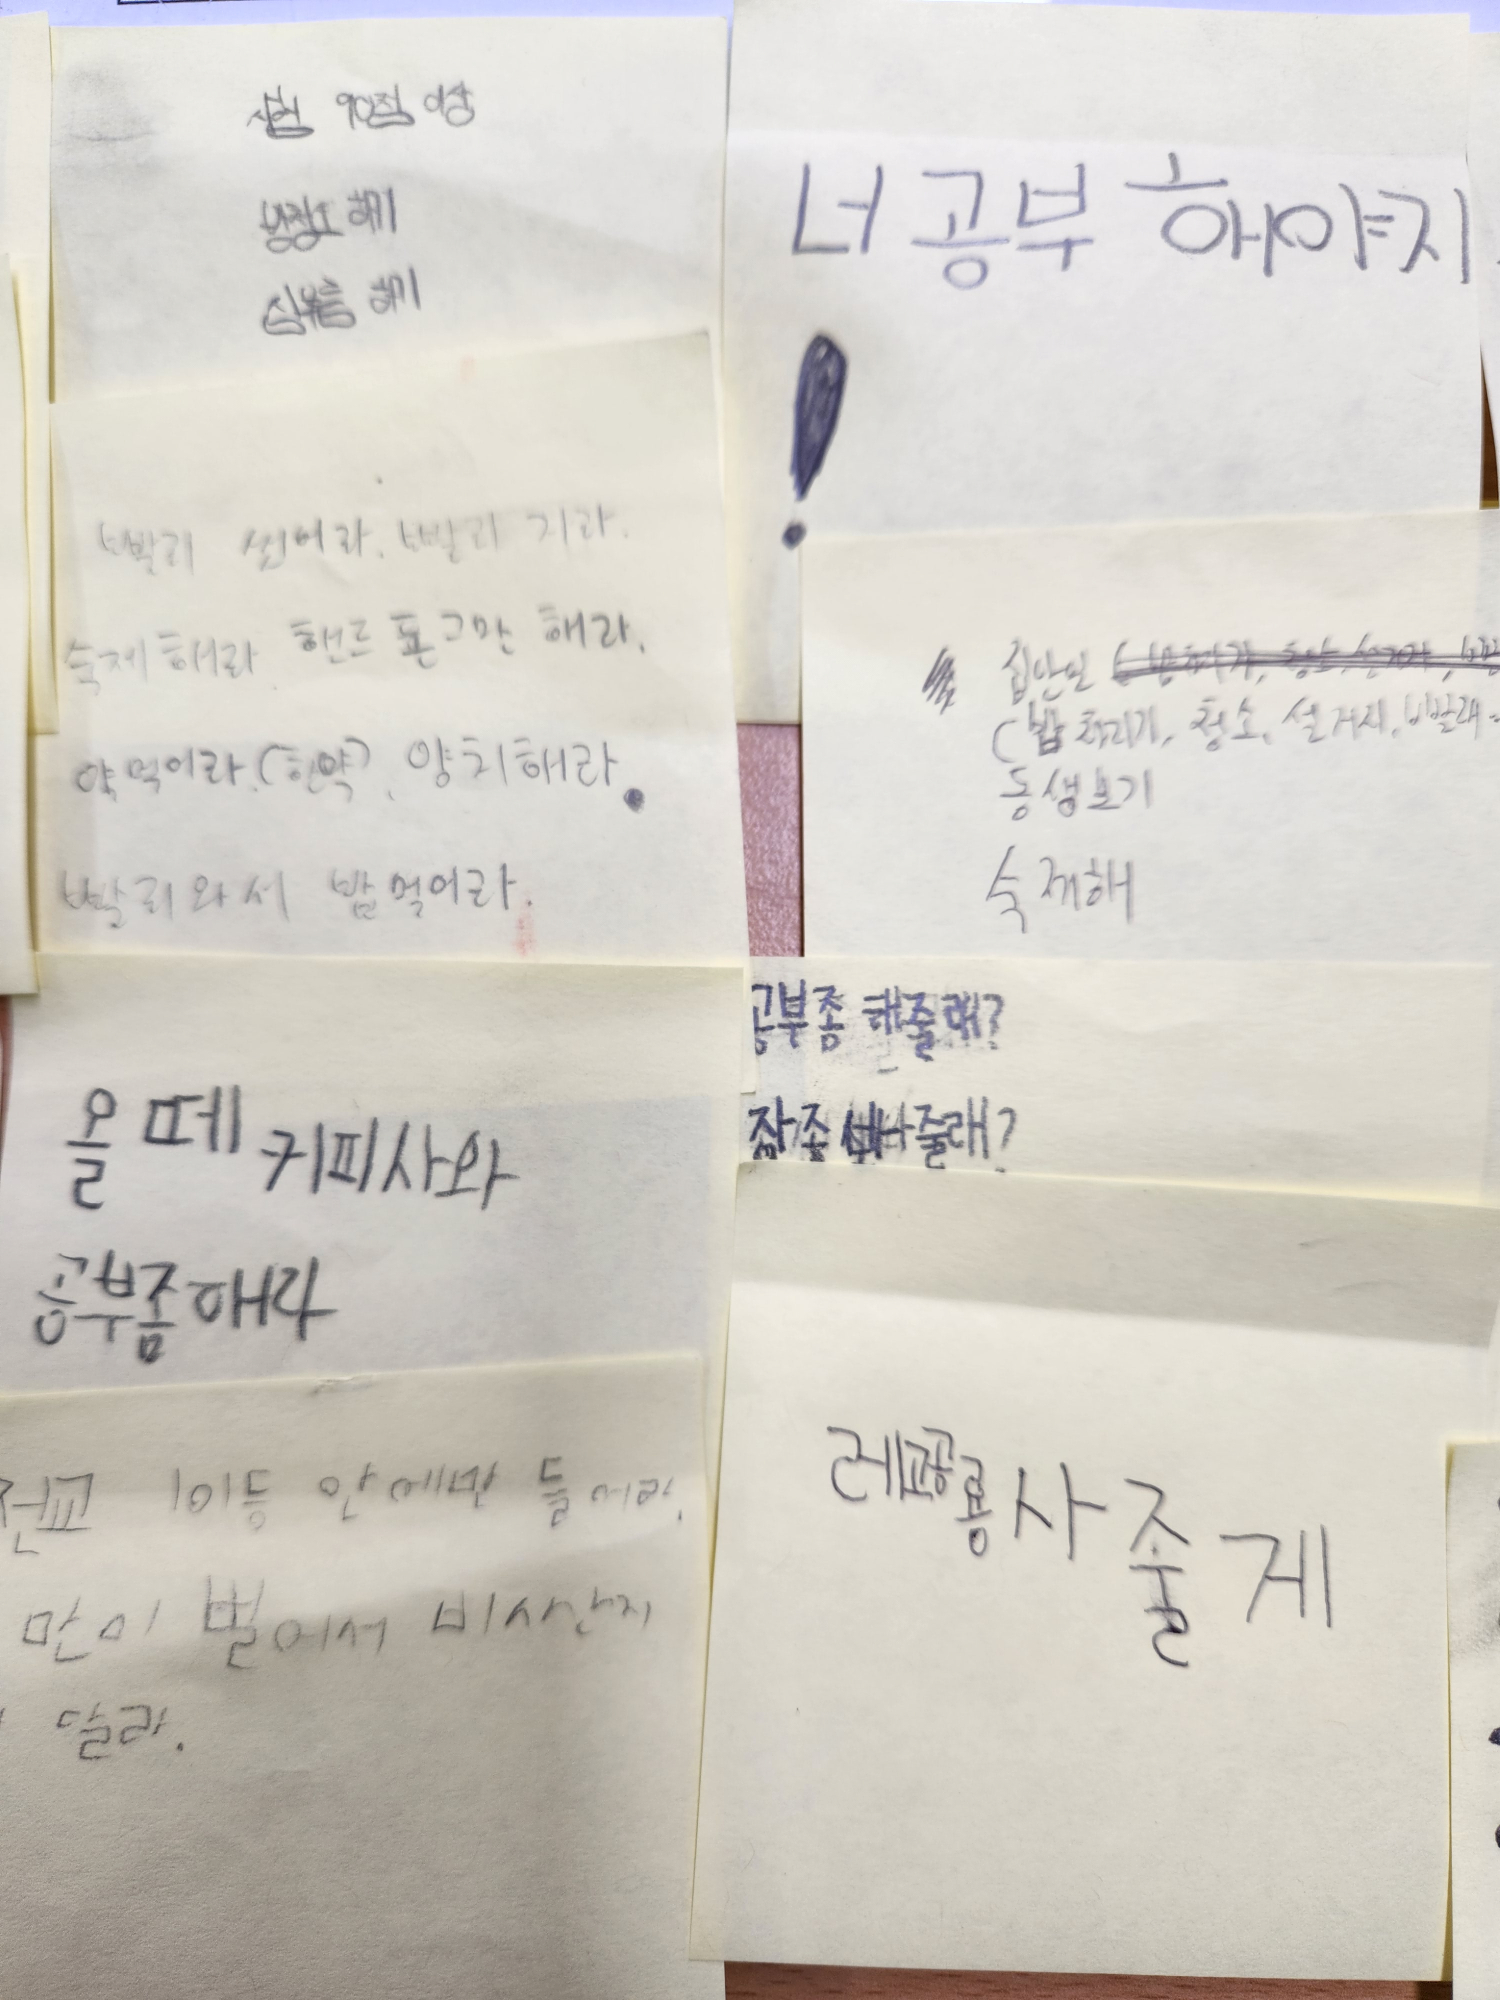 시험 90점 이상
방청소 하기
심부름 하기
빨리 씻어라. 빨리 자라.
숙제해라 핸드폰 그만 해라.
약 먹어라.(한약). 양치해라.
빨리와서 밥먹어라.
올떼 커피사와
공부좀해라
전교 2이등 안에만 들어라.
만이 벌어서 비싼
달라.
너 공부 해야지
!
집안일
(밥 차리기, 청소, 설거지, 빨래
동생보기
숙제해
공부좀 해줄래?
잠좀 줄래?
레공룡 사줄게